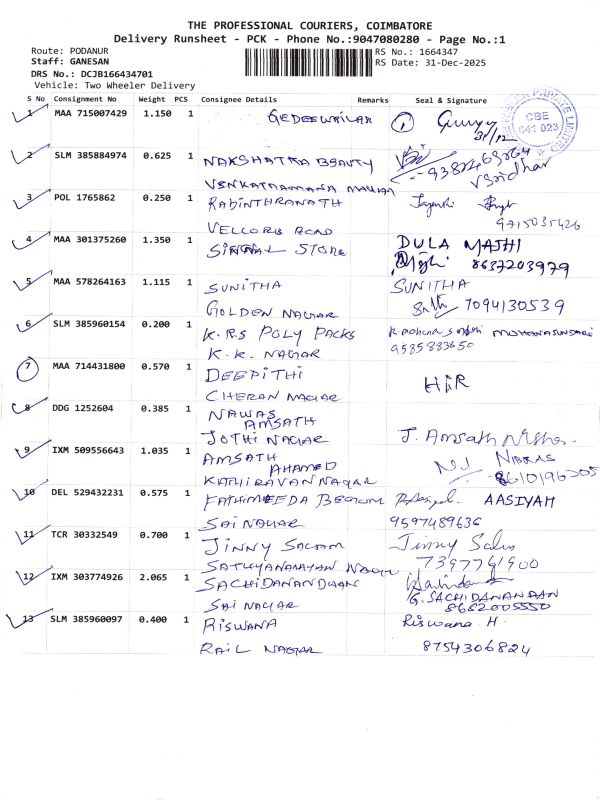 THE PROFESSIONAL COURIERS, COIMBATORE
Delivery Runsheet - PCK - Phone No.:9047080280 - Page No.:1
Route: PODANUR
RS No.: 1664347
Staff: GANESAN
RS Date: 31-Dec-2025
DRS No.: DCJB166434701
Vehicle: Two Wheeler Delivery
S No Consignment No Weight PCS Consignee Details Remarks Seal & Signature
1 MAA 715007429 1.150 1
31/12
CBE
641 023
2 SLM 385884974 0.625 1 NAKSHATRA BEAUTY
VSridhar
VENKATRAMANA NAGAR
3 POL 1765862 0.250 1 RABINTHRANATH
9715035426
VELLORE ROAD
4 MAA 301375260 1.350 1 SIGNAL STORE DULA MAJHI
8637203979
5 MAA 578264163 1.115 1 SUNITHA SUNITHA
7094130539
GOLDEN NAGAR
6 SLM 385960154 0.200 1 K.R.S POLY PACKS MOHANASUNDARI
9585883650
K.K. NAGAR
7 MAA 714431800 0.570 1 DEEPITHI
CHERAN NAGAR
8 DDG 1252604 0.385 1 NAWAS
AMSATH
JOTHI NAGAR
J. Amsath
9 IXM 509556643 1.035 1 AMSATH
AHAMED
NIBRAS
8610196205
KATHIRAVAN NAGAR
10 DEL 529432231 0.575 1 FATHIMEEDA BEGUM AASIYAH
SAI NAGAR 9597489636
11 TCR 30332549 0.700 1 JINNY SALAM Jinny Salam
7397791900
SATHYANARAYAN NAGAR
12 IXM 303774926 2.065 1 SACHIDANANDHAN
G. SACHIDANANDAN
8682005550
SAI NAGAR
13 SLM 385960097 0.400 1 RISWANA Riswana. H.
RAIL NAGAR 8754306824